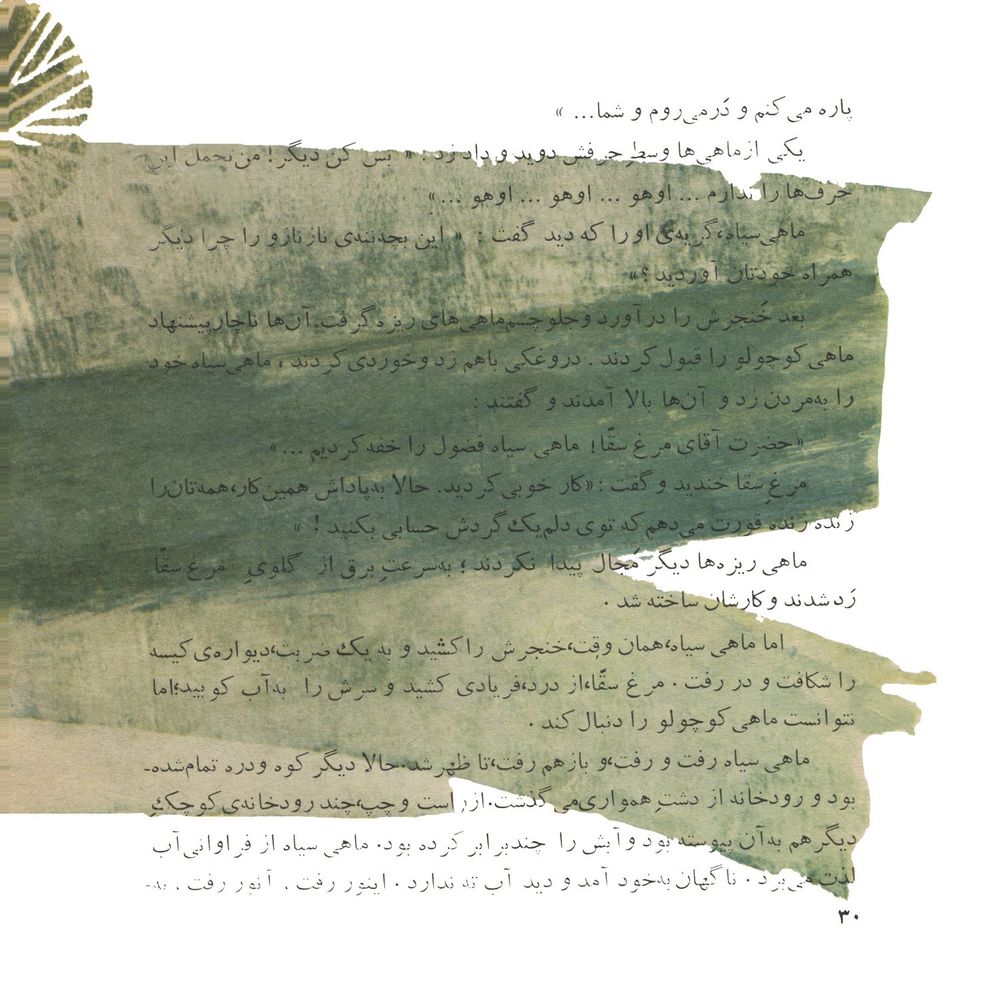 پاره می‌کنم و دَرمی‌روم و شما... »
یکی ازماهی‌ها وسطِ حرفش دوید و داد زد : « بس کن دیگر! من‌تحمل این
حرف‌ها را ندارم ... اوهو ... اوهو ... اوهو ...»
ماهی‌سیاه،گریه‌ی اورا که دید گفت : « این بچه‌ننه‌ی نازنازو را چرا دیگر
همراه خودتان آوردید؟»
بعد خَنجرش را درآورد وجلوچشم‌ماهی‌های ریزه گرفت. آن‌ها ناچارپیشنهاد
ماهی کوچولو را قبول کردند . دروغکی باهم زد وخوردی کردند ، ماهی‌سیاه خود
را به‌مردن زد و آن‌ها بالا آمدند و گفتند :
«حضرت آقای مرغ سقّا! ماهی سیاه فضول را خفه کردیم ...»
مرغِ سقا خندید و گفت :«کار خوبی کردید. حالا به‌پاداش همین‌کار،همه‌تان‌را
زنده زنده قورت می‌دهم که توی دلم یك گردش حسابی بکنید ! »
ماهی ریزه‌ها دیگر مَجال پیدا نکردند ؛ به‌سرعتِ برق از گلویِ مرغ سقّا
رَد شدند و کارشان ساخته شد .
اما ماهی سیاه،همان وقت،خنجرش را کشید و به یك ضربت،دیواره‌ی کیسه
را شکافت و در رفت . مرغ سقّا،از درد،فریادی کشید و سرش را به‌آب کوبید؛اما
نتوانست ماهی کوچولو را دنبال کند .
ماهی سیاه رفت و رفت،و بازهم رفت،تا ظهر شد.حالا دیگر کوه ودره تمام‌شده-
بود و رودخانه از دشت همواری می‌گذشت.از راست و چپ،چند رودخانه‌ی کوچکِ
دیگر هم به‌آن پیوسته بود و آبش را چندبرابر کرده بود. ماهی سیاه از فراوانی آب
لذت می‌برد . ناگهان به‌خود آمد و دید آب ته ندارد . اینور رفت ، آنور رفت ، به-
۳۰